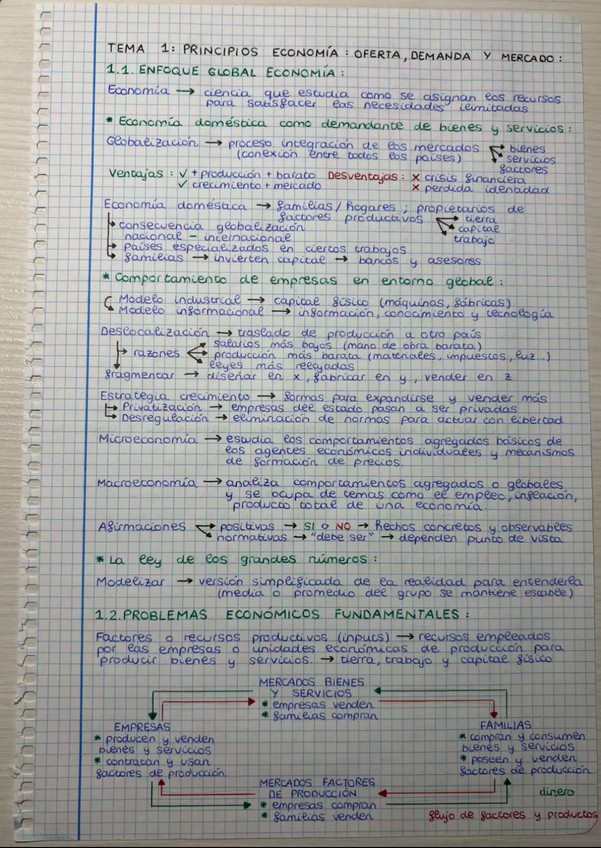 TEMA 1: PRINCIPIOS ECONOMÍA: OFERTA, DEMANDA Y MERCADO:
1.1. ENFOQUE GLOBAL ECONOMIA:
Economía → ciencia que estudia como se asignan los recursos
para satisfacer las necesidades ilimitadas
* Economía doméstica como demandante de bienes y servicios:
Globalización → proceso integración de los mercados → bienes
(conexión entre todos los países) → servicios
factores
Ventajas: ✓ + producción + barato Desventajas: × crisis financiera
✓ crecimiento + mercado × perdida idenadad
Economía doméstica → familias / hogares; propietarios de
factores productivos → tierra
→ consecuencia globalización → capital
nacional - internacional → trabajo
→ países especializados en ciertos trabajos
→ familias → invierten capital → bancos y asesores
* Comportamiento de empresas en entorno global:
Modelo industrial → capital físico (máquinas, fábricas)
Modelo informacional → información, conocimiento y tecnología
Deslocalización → traslado de producción a otro país
→ salarios más bajos (mano de obra barata)
→ razones → producción más barata (materiales, impuestos, luz...)
→ leyes más relajadas
fragmentar → diseñar en x, fabricar en y, vender en z
Estrategia crecimiento → formas para expandirse y vender más
→ Privatización → empresas del estado pasan a ser privadas
→ Desregulación → eliminación de normas para actuar con libertad
Microeconomía → estudia los comportamientos agregados básicos de
los agentes económicos individuales y mecanismos
de formación de precios.
Macroeconomía → analiza comportamientos agregados o globales
y se ocupa de temas como el empleo, inflación,
producto total de una economía.
Afirmaciones → positivas → SI o NO → hechos concretos y observables
→ normativas → "debe ser" → dependen punto de vista
* La ley de los grandes números:
Modelizar → versión simplificada de la realidad para entenderla
(media o promedio del grupo se mantiene estable)
1.2. PROBLEMAS ECONÓMICOS FUNDAMENTALES:
Factores o recursos productivos (inputs) → recursos empleados
por las empresas o unidades económicas de producción para
producir bienes y servicios. → tierra, trabajo y capital físico
MERCADOS BIENES
Y SERVICIOS
* empresas venden
* familias compran
EMPRESAS
* producen y venden
bienes y servicios
* contratan y usan
factores de producción
FAMILIAS
* compran y consumen
bienes y servicios
* poseen y venden
factores de producción
MERCADOS FACTORES
DE PRODUCCIÓN
* empresas compran
* familias venden
dinero
flujo de factores y productos